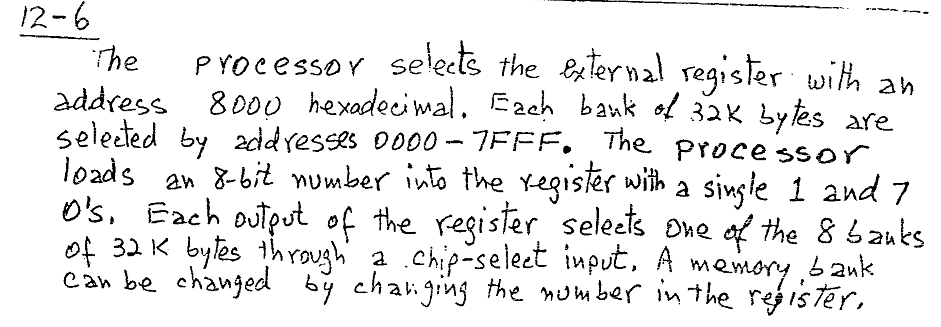 12-6
The processor selects the external register with an
address 8000 hexadecimal. Each bank of 32K bytes are
selected by addresses 0000 - 7FFF. The processor
loads an 8-bit number into the register with a single 1 and 7
0's. Each output of the register selects one of the 8 banks
of 32 K bytes through a chip-select input. A memory bank
can be changed by changing the number in the register.